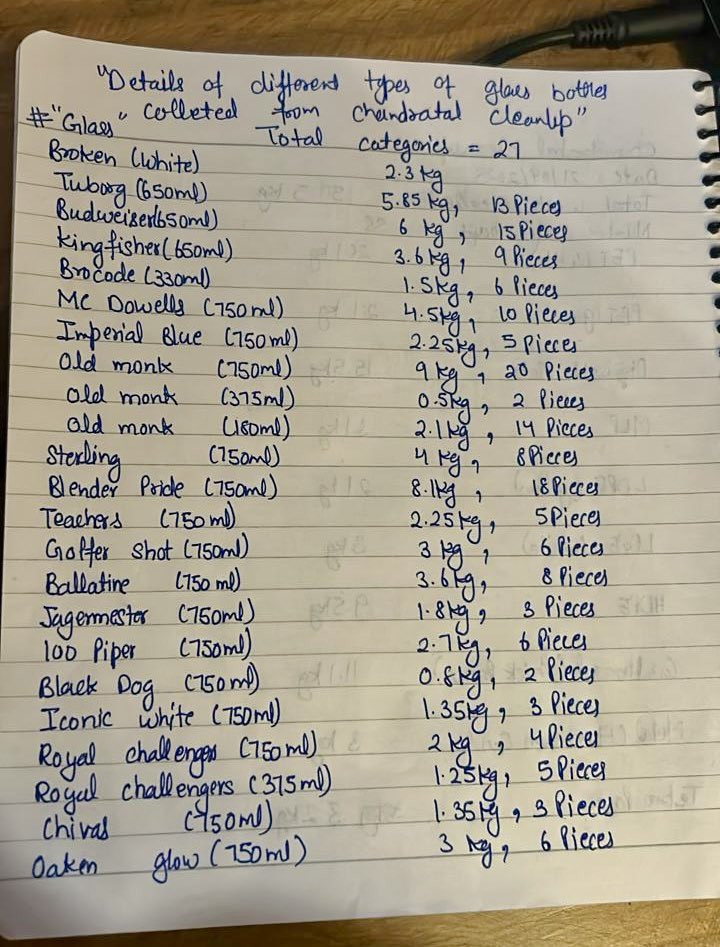 "Details of different types of glass bottles
#"Glass" Colleted from Chandratal Cleanup"
Total categories = 27
Broken (White) 2.3 kg
Tuborg (650ml) 5.85 kg, 13 Pieces
Budweiser(650ml) 6 kg, 15 Pieces
Kingfisher(650ml) 3.6 kg, 9 Pieces
Brocode (330ml) 1.5kg, 6 Pieces
Mc Dowells (750ml) 4.5kg, 10 Pieces
Imperial Blue (750ml) 2.25kg, 5 Pieces
Old monk (750ml) 9 kg, 20 Pieces
Old monk (375ml) 0.5kg, 2 Pieces
Old monk (180ml) 2.1kg, 14 Pieces
Sterling (750ml) 4 kg, 8 Pieces
Blender Pride (750ml) 8.1kg, 18 Pieces
Teachers (750ml) 2.25kg, 5 Pieces
Goffer Shot (750ml) 3 kg, 6 Pieces
Ballatine (750 ml) 3.6kg, 8 Pieces
Jagermester (750ml) 1.8kg, 3 Pieces
100 Piper (750ml) 2.7kg, 6 Pieces
Black Dog (750ml) 0.8kg, 2 Pieces
Iconic White (750ml) 1.35kg, 3 Pieces
Royal challenges (750ml) 2 kg, 4 Pieces
Royal challengers (375ml) 1.25kg, 5 Pieces
Chivas (750ml) 1.35kg, 3 Pieces
Oaken glow (750ml) 3 kg, 6 Pieces